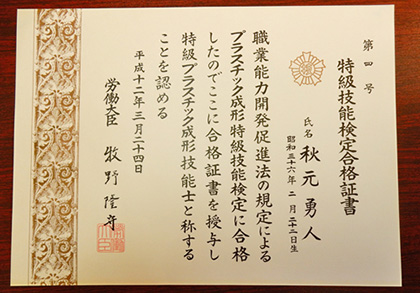 第四号
特級技能検定合格証書
氏名 秋元勇人
昭和三十六年二月二十三日生
職業能力開発促進法の規定による
プラスチック成形特級技能検定に合格
したのでここに合格証書を授与し
特級プラスチック成形技能士と称する
ことを認める
平成十二年三月二十四日
労働大臣 牧野隆守